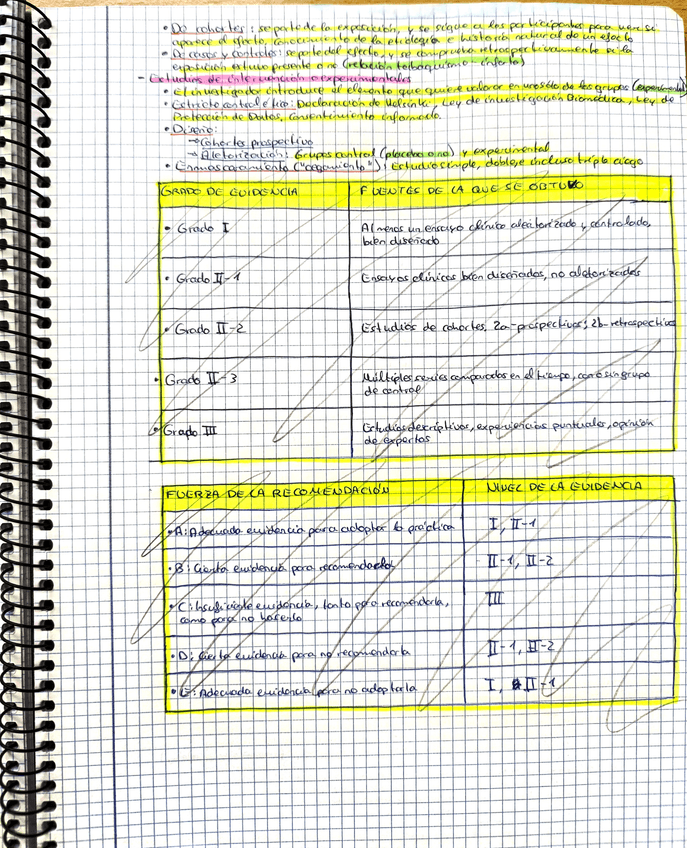 • De cohortes: se parte de la exposición, y se sigue a los participantes para ver si
aparece el efecto, conocimiento de la etiología e historia natural de un efecto
• De casos y controles: se parte del efecto, y se comprueba retrospectivamente si la
exposición estuvo presente o no (relación tabaquismo - infarto)
- Estudios de intervención o experimentales
• El investigador introduce el elemento que quiere valorar en uno sólo de los grupos (experimental)
• Estricto control ético: Declaración de Helsinki, Ley de investigación Biomédica, Ley de
Protección de Datos, consentimiento informado.
• Diseño:
→ Cohortes prospectivo
→ Aletorización: Grupos control (placebo o no) y experimental
• Enmascaramiento ("cegamiento"): Estudio simple, doble, e incluso triple ciego
GRADO DE EVIDENCIA
FUENTES DE LA QUE SE OBTUVO
• Grado I
Al menos un ensayo clínico aleatorizado y controlado,
bien diseñado
• Grado II-1
Ensayos clínicos bien diseñados, no aletorizados
• Grado II-2
Estudios de cohortes, 2a-prospectivos; 2b-retrospectivos
• Grado II-3
Múltiples series comparadas en el tiempo, con o sin grupo
de control
• Grado III
Estudios descriptivos, experiencias puntuales, opinión
de expertos
FUERZA DE LA RECOMENDACIÓN
NIVEL DE LA EVIDENCIA
• A: Adecuada evidencia para adoptar la práctica
I, II-1
• B: Cierta evidencia para recomendarla
II-1, II-2
• C: Insuficiente evidencia, tanto para recomendarla,
como para no hacerlo
III
• D: Cierta evidencia para no recomendarla
II-1, II-2
• E: Adecuada evidencia para no adoptarla
I, II-1